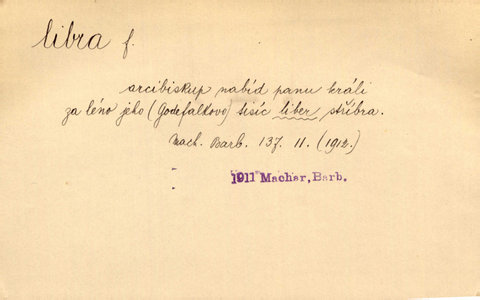 libra f.
arcibiskup nabíd panu králi
za léno jeho (Godefalkovo) tisíc liber stříbra.
Mach. Barb. 137. 11. (1912.)
1911 Machar, Barb.